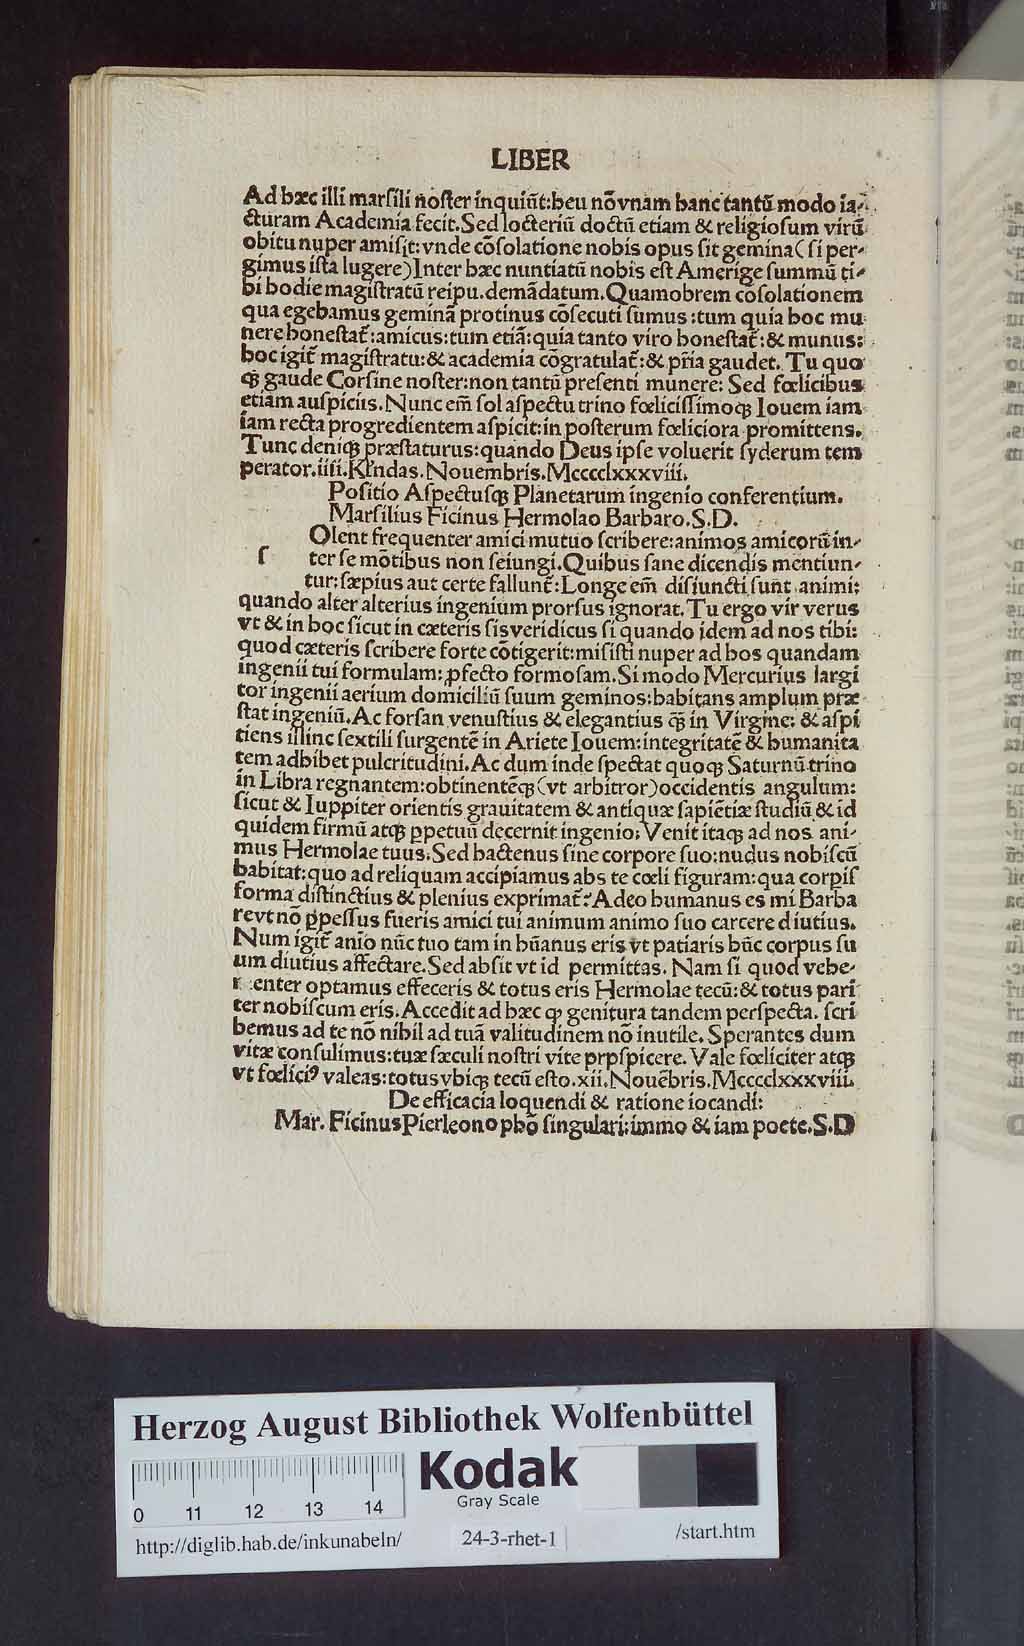 LIBER
Ad hæc illi marſili noſter inquiūt:heu nō vnam hanc tantū modo ia-
cturam Academia fecit.Sed locteriū doctū etiam & religioſum virū
obitu nuper amiſit:vnde cōſolatione nobis opus ſit gemina(ſi per-
gimus iſta lugere)Inter hæc nuntiatū nobis eſt Amerige ſummū ti-
bi hodie magiſtratū reipu.demādatum.Quamobrem cōſolationem
qua egebamus geminā protinus cōſecuti ſumus:tum quia hoc mu
nere honeſtat̄:amicus:tum etiā:quia tanto viro honeſtat̄:& munus:
hoc igit̄ magiſtratu:& academia cōgratulat̄:& pr̄ia gaudet. Tu quo
qꝫ gaude Corſine noſter:non tantū preſenti munere: Sed fœlicibus
etiam auſpiciis.Nunc em̄ ſol aſpectu trino fœliciſſimoqꝫ Iouem iam
iam recta progredientem aſpicit:in poſterum fœliciora promittens.
Tunc deniqꝫ præſtaturus:quando Deus ipſe voluerit ſyderum tem
perator.iiii.Kl̄ndas.Nouembris.Mcccclxxxviii.
Poſitio Aſpectuſqꝫ Planetarum ingenio conferentium.
Marſilius Ficinus Hermolao Barbaro.S.D.
ſ Olent frequenter amici mutuo ſcribere:animos amicorū in-
ter ſe mōtibus non ſeiungi.Quibus ſane dicendis mentiun-
tur:ſæpius aut certe fallunt̄:Longe em̄ disiuncti ſunt animi:
quando alter alterius ingenium prorſus ignorat.Tu ergo vir verus
vt & in hoc ſicut in cæteris ſis veridicus ſi quando idem ad nos tibi:
quod cæteris ſcribere forte cōtigerit:miſiſti nuper ad hos quandam
ingenii tui formulam:ꝓfecto formoſam.Si modo Mercurius largi
tor ingenii aerium domiciliū ſuum geminos:habitans amplum præ
ſtat ingeniū.Ac forſan venuſtius & elegantius qꝫ in Virgine: & aſpi
tiens illinc ſextili ſurgentē in Ariete Iouem:integritatē & humanita
tem adhibet pulcritudini.Ac dum inde ſpectat quoqꝫ Saturnū trino
in Libra regnantem:obtinentēqꝫ(vt arbitror)occidentis angulum:
ſicut & Iuppiter orientis grauitatem & antiquæ ſapiētiæ ſtudiū & id
quidem firmū atqꝫ ꝑpetuū decernit ingenio:Venit itaqꝫ ad nos ani-
mus Hermolae tuus.Sed hactenus ſine corpore ſuo:nudus nobiſcū
habitat:quo ad reliquam accipiamus abs te cœli figuram:qua corꝑiſ
forma diſtinctius & plenius exprimat̄?Adeo humanus es mi Barba
re vt nō ꝑpeſſus fueris amici tui animum animo ſuo carcere diutius.
Num igit̄ anīo nūc tuo tam in hūanus eris vt patiaris hūc corpus ſu
um diutius affectare.Sed abſit vt id permittas. Nam ſi quod vehe-
enter optamus effeceris & totus eris Hermolae tecū:& totus pari
ter nobiſcum eris.Accedit ad hæc qꝫ genitura tandem perſpecta. ſcri
bemus ad te nō nihil ad tuā valitudinem nō inutile.Sperantes dum
vitæ conſulimus:tuæ ſæculi noſtri vite prpſpicere. Vale fœliciter atqꝫ
vt fœliciꝰ valeas:totus vbiqꝫ tecū eſto.xii.Nouēbris.Mcccclxxxviii.
De efficacia loquendi & ratione iocandi:
Mar. Ficinus Pierleono phō ſingulari:immo & iam poete.S.D
Herzog August Bibliothek Wolfenbüttel
Kodak
Gray Scale
0 11 12 13 14
http://diglib.hab.de/inkunabeln/ 24-3-rhet-1 /start.htm